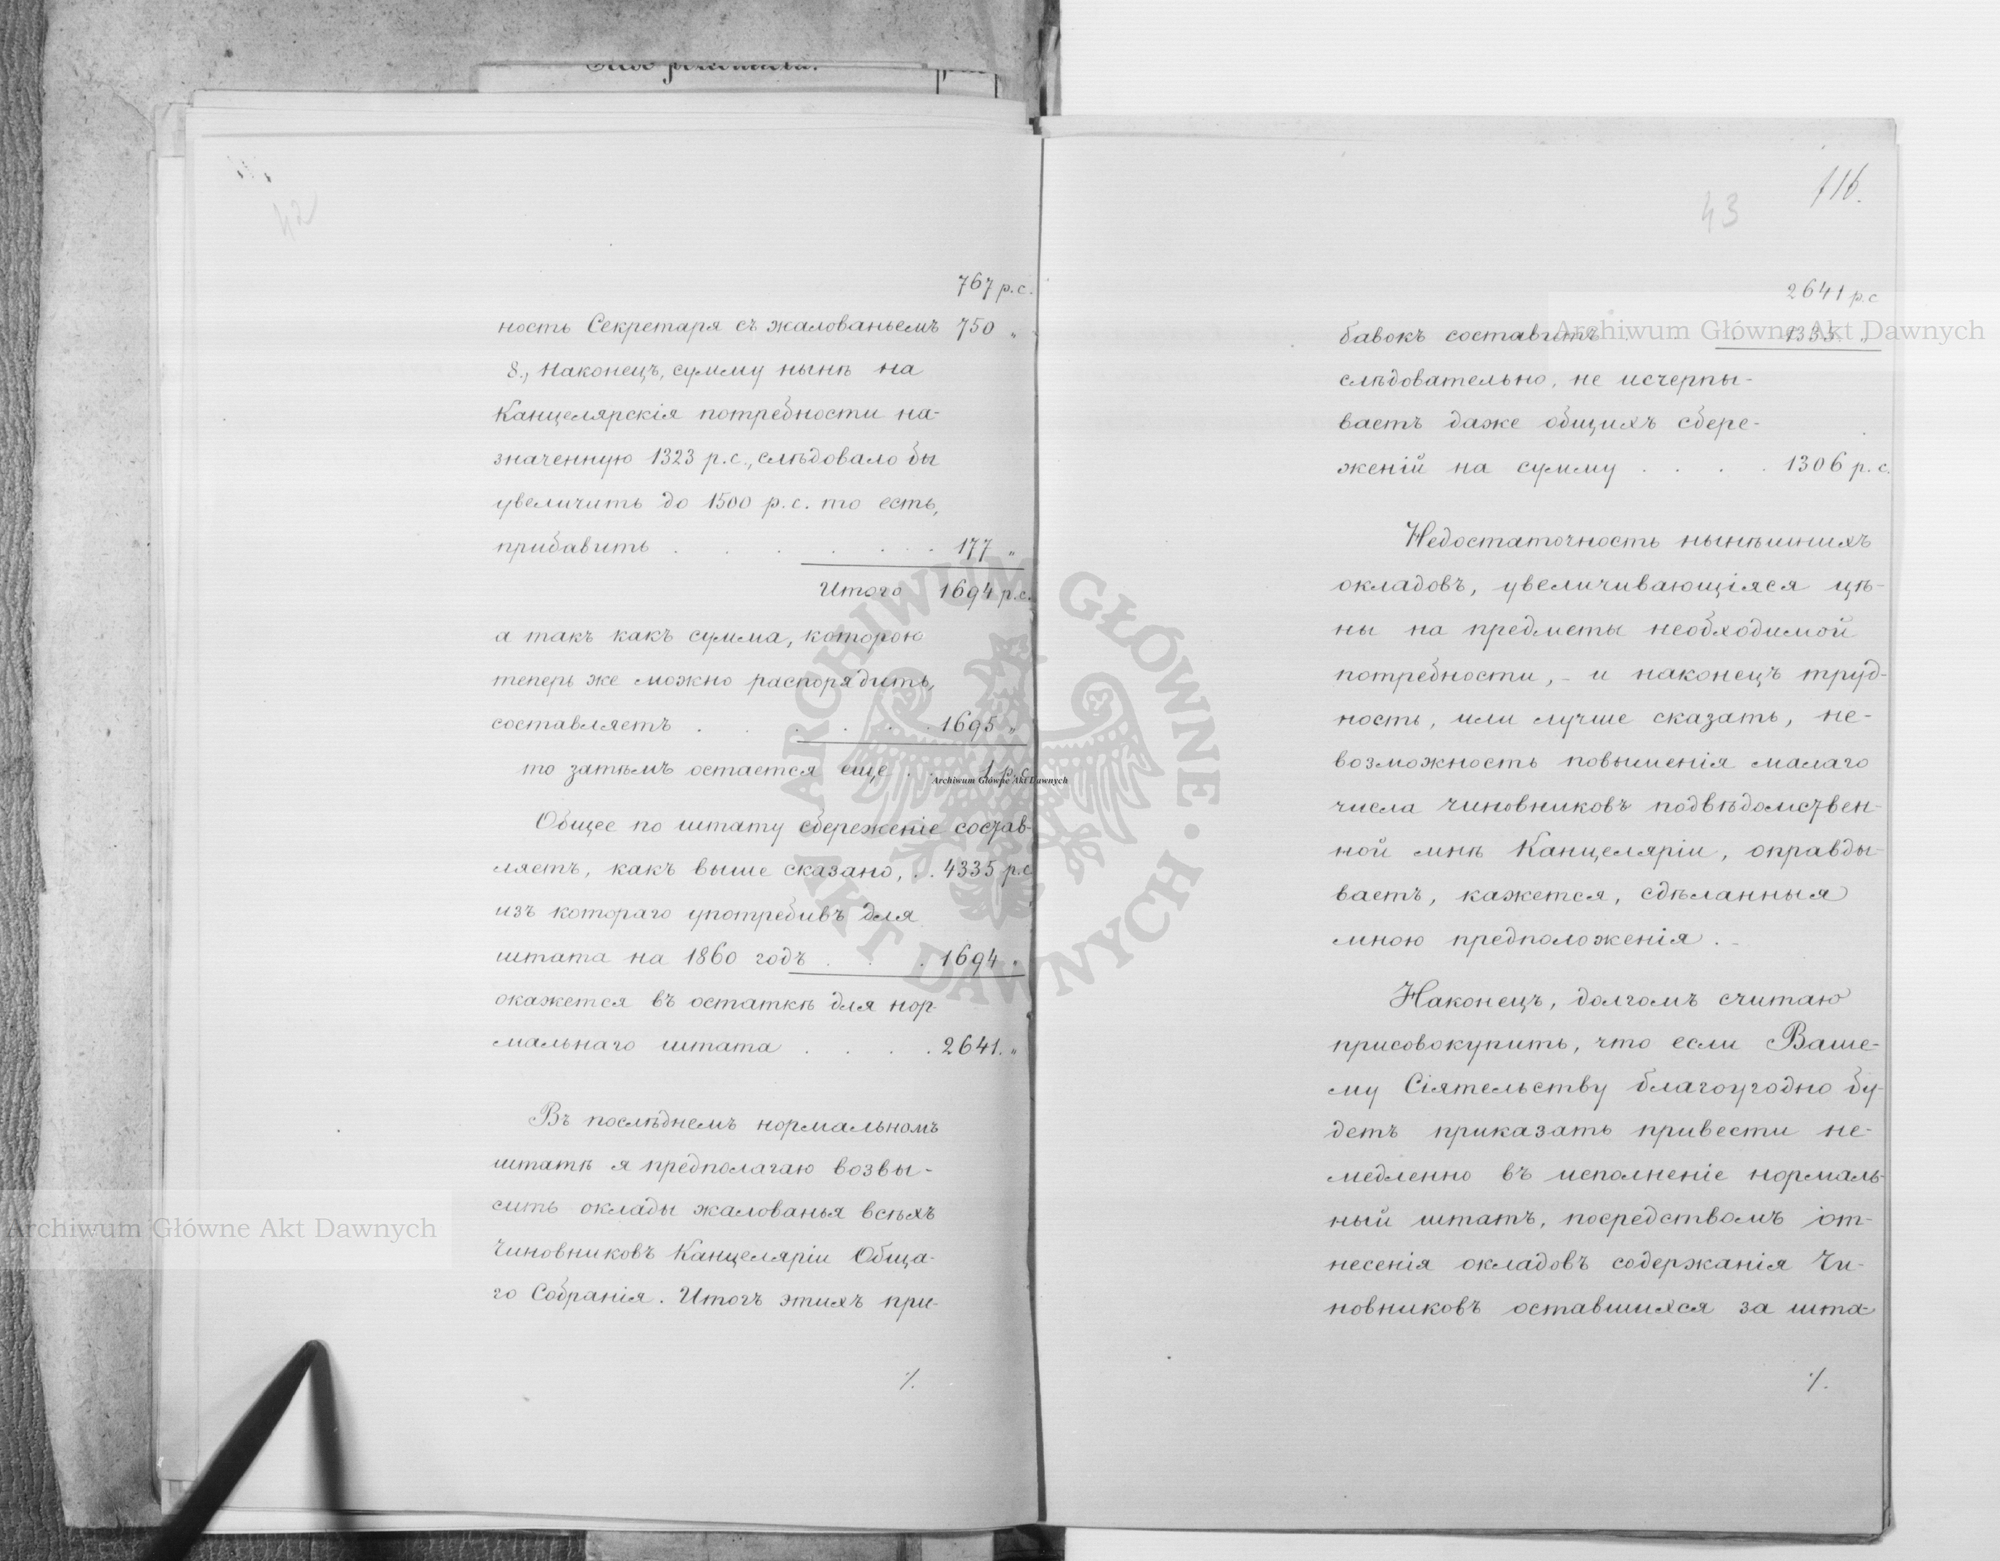 42
767 р.с.
ность Секретаря съ жалованьемъ 750 "
8., Наконецъ, сумму нынѣ на
Канцелярскія потребности на-
значенную 1323 р.с., слѣдовало бы
увеличить до 1500 р.с. то есть,
прибавить . . . . . . . 177 "
Итого 1694 р.с.
а такъ какъ сумма, которою
теперь же можно распорядить,
составляетъ . . . . . . 1695 "
то затѣмъ остается еще . . 1 р.с.
Общее по штату сбереженіе состав-
ляетъ, какъ выше сказано, . . 4335 р.с
изъ котораго употребивъ для
штата на 1860 годъ . . . 1694 "
окажется въ остаткѣ для нор-
мальнаго штата . . . . 2641. "
Въ послѣднемъ нормальномъ
штатѣ я предполагаю возвы-
сить оклады жалованья всѣхъ
Чиновниковъ Канцеляріи Обща-
го Собранія. Итогъ этихъ при-
./.
116.
43
2641 р.с
бавокъ составитъ . . . 1335. "
слѣдовательно, не исчерпы-
ваетъ даже общихъ сбере-
женій на сумму . . . . 1306 р.с.
Недостаточность нынѣшнихъ
окладовъ, увеличивающіяся цѣ-
ны на предметы необходимой
потребности, - и наконецъ труд-
ность, или лучше сказать, не-
возможность повышенія малаго
числа чиновниковъ подвѣдомствен-
ной мнѣ Канцеляріи, оправды-
ваетъ, кажется, сдѣланныя
мною предположенія. -
Наконецъ, долгомъ считаю
присовокупить, что если Ваше-
му Сіятельству благоугодно бу-
детъ приказать привести не-
медленно въ исполненіе нормаль-
ный штатъ, посредствомъ от-
несенія окладовъ содержанія Чи-
новниковъ оставшихся за шта-
./.
Archiwum Główne Akt Dawnych
Archiwum Główne Akt Dawnych
Archiwum Główne Akt Dawnych
ARCHIWUM GŁÓWNE · AKT DAWNYCH ·